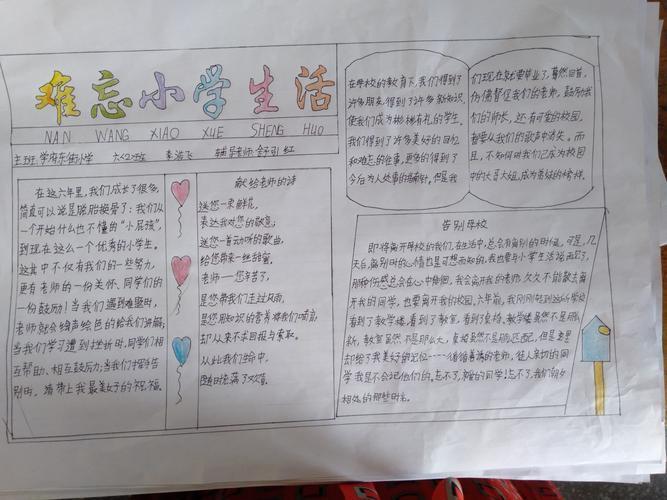 难忘小学生活
NAN WANG XIAO XUE SHENG HUO
主班:学府东街小学 六(2)班 辅导老师:舒引红
在这六年里,我们成长了很多,
简直可以说是脱胎换骨了:我们从
一个开始什么也不懂的“小屁孩”,
到现在这么一个优秀的小学生。
这其中不仅有我们的一些努力,
更有老师的一份关怀、同学们的
一份鼓励!当我们遇到难题时,
老师就会绘声绘色的给我们讲解;
当我们学习遭到挫折时,同学们相
互帮助、相互鼓励;当我们挥手告
别时,请带上我最美好的祝福。
献给老师的诗
送您一束鲜花,
表达我对您的敬意;
送您一首动听的歌曲,
给您带来一丝甜蜜,
老师一一您辛苦了,
是您带我们走过风雨,
是您用知识的营养将我们哺育,
却从来不求回报与索取。
从此我们的心中,
随时充满了欢喜。
在母校的教育下,我们得到了
许多朋友,得到了许多新知识,
使我们成为彬彬有礼的学生,
我们得到了许多美好的回忆
和难忘的往事,更多的得到了
今后为人处事的指南针。但是我
们现在就要毕业了,蓦然回首,
仿佛督促我们的老师,鼓励我
们的师长,还有可爱的校园,
都要从我们的歌声中消失。而
且,不知何时我们已成为校园
中的大哥大姐,成为美好的榜样。
告别母校
即将离开母校的我们,在生活中,总会有离别的时候,可是,几
天后,离别时的心情也是可想而知的,我也要与小学生活话再见了,
那种伤感总会在心中徘徊,我会离开我的老师,久久不能散去离
开我的同学,也要离开我的校园,六年前,我刚刚转到这个学校
看到了教学楼,看到了教室,看到了桌椅,教学楼虽然不是那么
新,教室虽然不是那么大,桌椅虽然不是那么匹配,但是这里
却给了我美好的记忆——循循善诱的老师,使人亲切的同
学我是不会忘记他们的。忘不了,我的同学!忘不了,我们朝夕
相处的那些时光。